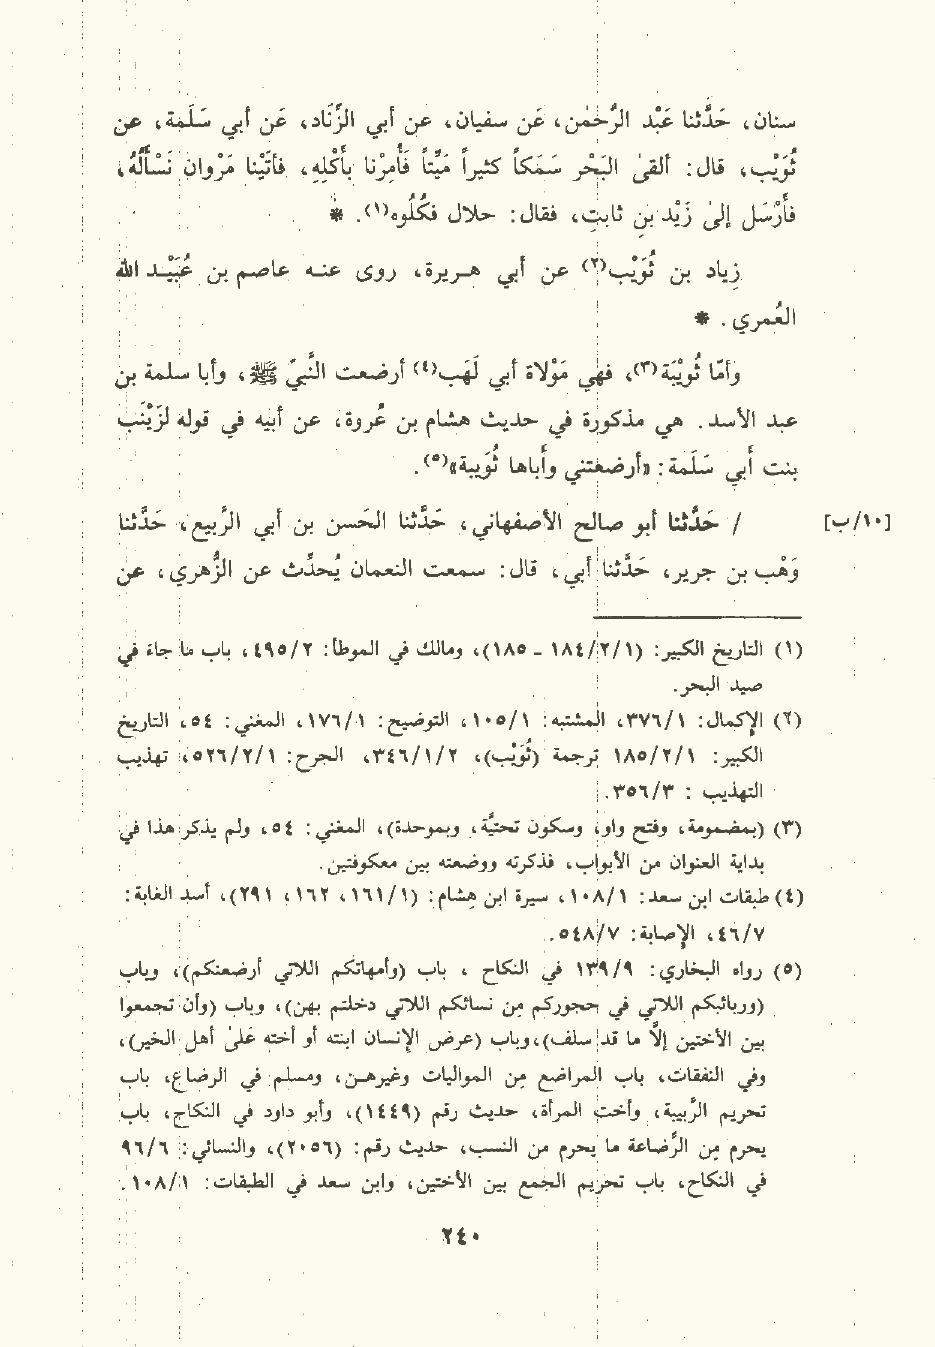 سنان، حَدَّثنا عَبْد الرُّحمٰن، عَن سفيان، عن أبي الزِّنَاد، عَن أبي سَلَمة، عن
ثُوَيْب، قال: ألقىٰ البَحْر سَمَكاً كثيراً مَيِّتاً فَأُمِرْنا بأَكْلِهِ، فأَتَيْنا مَرْوان نَسْأَلُهُ،
فأَرْسَل إلىٰ زَيْد بنِ ثابتِ، فقال: حلال فكُلُوه(١). *
زِياد بن ثُوَيْب(٢) عن أبي هـريرة، روى عنـه عاصم بن عُبَيْـد الله
العُمري. *
وأمّا ثُويْبَة(٣)، فهي مَوْلاة أبي لَهَب(٤) أرضعت النَّبيّ ﷺ، وأبا سلمة بن
عبد الأسد. هي مذكورة في حديث هشام بن عُروة، عن أبيه في قوله لزَيْنَب
بنت أَبي سَلَمة: «أرضعتني وأَباها ثُوَيبة»(٥).
/ حَدَّثنا أبو صالح الأصفهاني، حَدَّثنا الحَسن بن أبي الرَّبيع، حَدَّثنا [١٠/ب]
وَهْب بن جرير، حَدَّثنا أبي، قال: سمعت النعمان يُحدِّث عن الزُّهري، عن
(١) التاريخ الكبير: (١٨٤/٢/١ ـ ١٨٥)، ومالك في الموطأ: ٤٩٥/٢، باب ما جاء في
صيد البحر.
(٢) الإكمال: ٣٧٦/١، المشتبه: ١٠٥/١، التوضيح: ١٧٦/١، المغني: ٥٤، التاريخ
الكبير: ١٨٥/٢/١ ترجمة (ثُوَيْب)، ٣٤٦/١/٢، الجرح: ٥٢٦/٢/١، تهذيب
التهذيب : ٣٥٦/٣.
(٣) (بمضمومة، وفتح واو، وسكون تحتيَّة، وبموحدة)، المغني: ٥٤، ولم يذكر هذا في
بداية العنوان من الأبواب، فذكرته ووضعته بين معكوفتين.
(٤) طبقات ابن سعد: ١٠٨/١، سيرة ابن هشام: (١٦١/١، ١٦٢، ٢٩١)، أسد الغابة:
٤٦/٧، الإصابة: ٥٤٨/٧.
(٥) رواه البخاري: ١٣٩/٩ في النكاح ، باب (وأمهاتكم اللاتي أرضعنكم)، وباب
(وربائبكم اللاتي في حجوركم مِن نسائكم اللاتي دخلتم بهن)، وباب (وأن تجمعوا
بين الأختين إلَّا ما قد سلف)، وباب (عرض الإنسان ابنته أو أخته عَلىٰ أهل الخير)،
وفي النفقات، باب المراضع مِن المواليات وغيرهـن، ومسلم في الرضاع، باب
تحريم الرَّبيبة، وأخت المرأة، حديث رقم (١٤٤٩)، وأبو داود في النكاح، باب
يحرم مِن الرَّضاعة ما يحرم من النسب، حديث رقم: (٢٠٥٦)، والنسائي: ٩٦/٦
في النكاح، باب تحريم الجمع بين الأختين، وابن سعد في الطبقات: ١٠٨/١.
٢٤٠